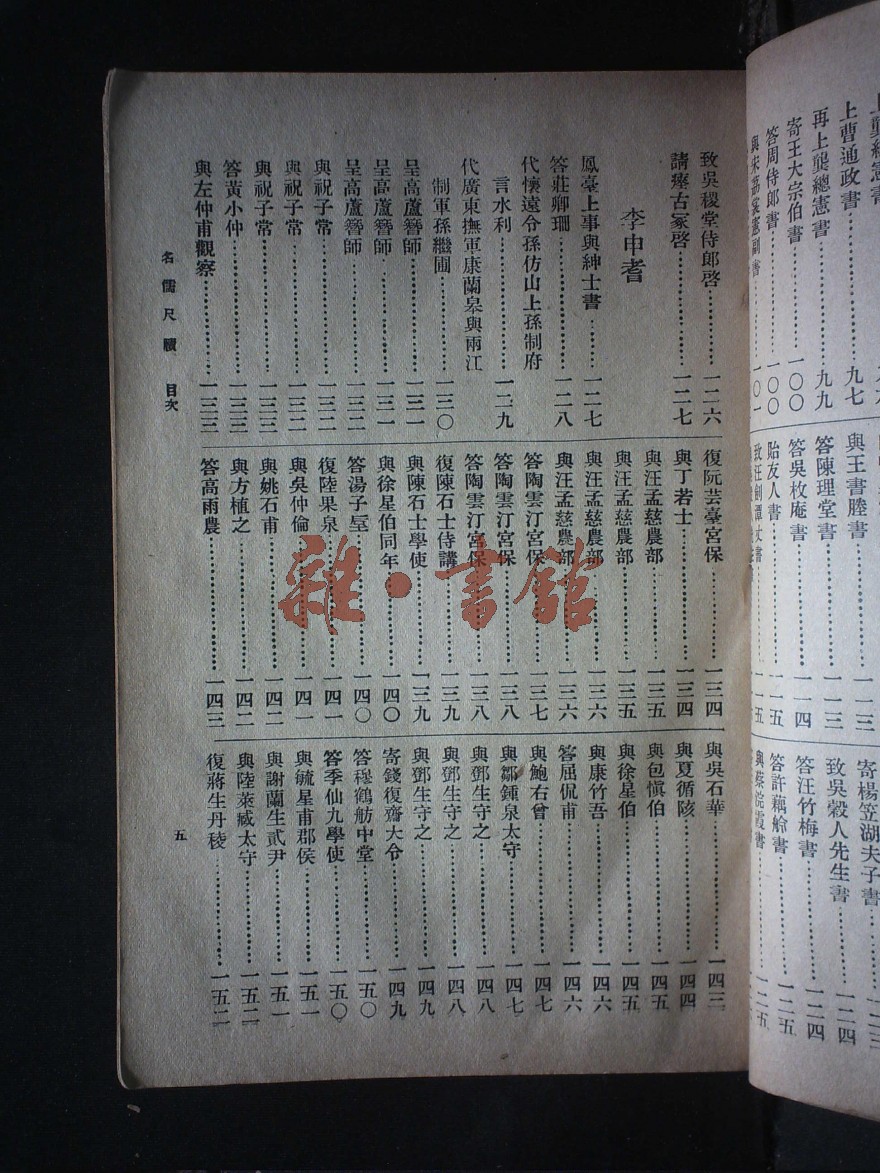 上曹通政書⋯⋯九七
再上龔總憲書⋯⋯九九
寄王大宗伯書⋯⋯一〇〇
答周侍郎書⋯⋯一〇〇
與王書塍書⋯⋯一一三
答陳理堂書⋯⋯一一三
答吳枚庵書⋯⋯一一四
貽友人書⋯⋯一一五
寄楊笠湖夫子書
致吳穀人先生書⋯⋯一二四
答汪竹梅書⋯⋯一二四
答許藕舲書⋯⋯一二五
與蔡浣霞書⋯⋯一二五
致吳稷堂侍郎啓⋯⋯一二六
請瘞古冢啓⋯⋯一二七
李申耆
鳳臺上事與紳士書⋯⋯一二七
答莊卿珊⋯⋯一二八
代懷遠令孫仿山上孫制府
言水利⋯⋯一二九
代廣東撫軍康蘭皋與兩江
制軍孫繼圃⋯⋯一三〇
呈高蘆簪師⋯⋯一三一
呈高蘆簪師⋯⋯一三一
呈高蘆簪師⋯⋯一三二
與祝子常⋯⋯一三二
與祝子常⋯⋯一三二
與祝子常⋯⋯一三三
答黃小仲⋯⋯一三三
與左仲甫觀察⋯⋯一三三
復阮芸臺宮保⋯⋯一三四
與丁若士⋯⋯一三四
與汪孟慈農部⋯⋯一三五
與汪孟慈農部⋯⋯一三五
與汪孟慈農部⋯⋯一三六
與汪孟慈農部⋯⋯一三六
答陶雲汀宮保⋯⋯一三七
答陶雲汀宮保⋯⋯一三八
答陶雲汀宮保⋯⋯一三八
復陳石士侍講⋯⋯一三九
與陳石士學使⋯⋯一三九
與徐星伯同年⋯⋯一四〇
答湯子垕⋯⋯一四〇
復陸果泉⋯⋯一四一
與吳仲倫⋯⋯一四一
與姚石甫⋯⋯一四二
與方植之⋯⋯一四二
答高雨農⋯⋯一四三
與吳石華⋯⋯一四三
與夏循陔⋯⋯一四四
與包慎伯⋯⋯一四五
與徐星伯⋯⋯一四五
與康竹吾⋯⋯一四六
答屈侃甫⋯⋯一四六
與鮑右曾⋯⋯一四七
與鄒鍾泉太守⋯⋯一四七
與鄧生守之⋯⋯一四八
與鄧生守之⋯⋯一四八
與鄧生守之⋯⋯一四九
寄錢復齋大令⋯⋯一四九
答穆鶴舫中堂⋯⋯一五〇
答季仙九學使⋯⋯一五〇
與毓星甫郡侯⋯⋯一五一
與謝蘭生貳尹⋯⋯一五一
與陸萊臧太守⋯⋯一五二
復蔣生丹稜⋯⋯一五二
名儒尺牘 目次
五
雜·書館